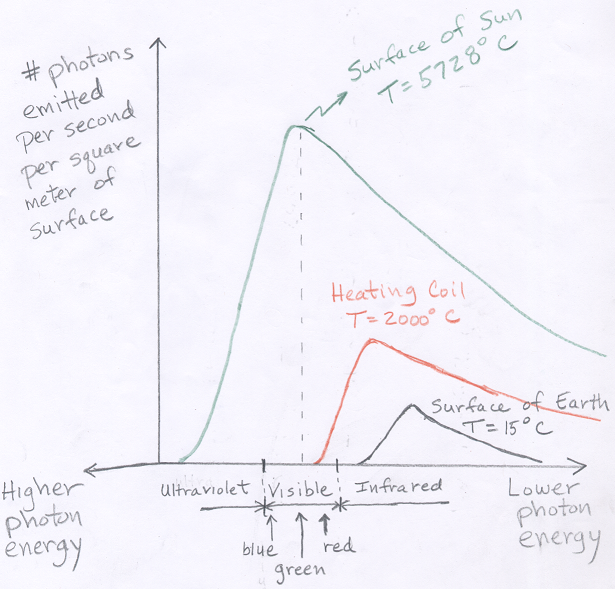 # photons
emitted
per second
per square
meter of
surface
Surface of Sun
T=5728° C
Heating Coil
T=2000° C
Surface of Earth
T=15° C
Higher
photon
energy
Ultraviolet
Visible
Infrared
Lower
photon
energy
blue
green
red